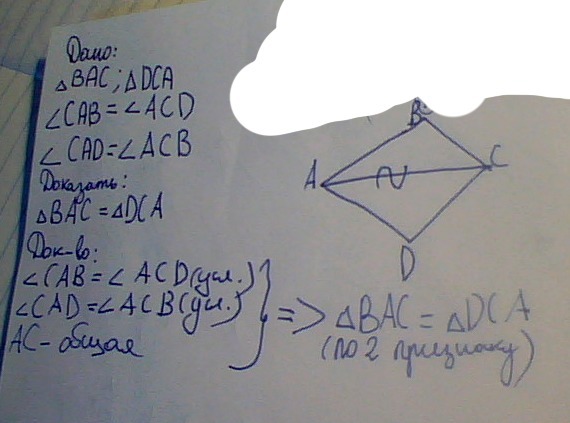 Дано:
△BAC; △DCA
∠CAB = ∠ACD
∠CAD = ∠ACB
Доказать:
△BAC = △DCA
Док-во:
∠CAB = ∠ACD (усл.)
∠CAD = ∠ACB (усл.)
AC - общая
=> △BAC = △DCA
(по 2 признаку)
B
A
C
D